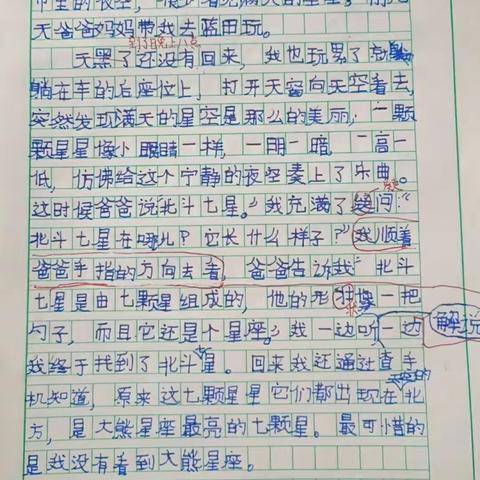 天爸爸妈妈带我去蓝田玩。
到了晚上八点
天黑了还没有回来，我也玩累了
躺在车的后座位上，打开天窗向天空看去，
突然发现满天的星空是那么的美丽，一颗
颗星星像小眼睛一样，一明一暗，一高一
低，仿佛给这个宁静的夜空奏上了乐曲。
这时候爸爸说“北斗七星。”我充满了疑问：“
北斗七星在哪儿？它长什么样子？”我顺着
爸爸手指的方向去看，爸爸告诉我“北斗
七星是由七颗星组成的，他的形状像一把
勺子，而且它还是个星座。”我一边听一边
解说
我终于找到了北斗星。回来我还通过查手
机知道，原来这七颗星星它们都出现在北
方，是大熊星座最亮的七颗星。最可惜的
是我没有看到大熊星座。